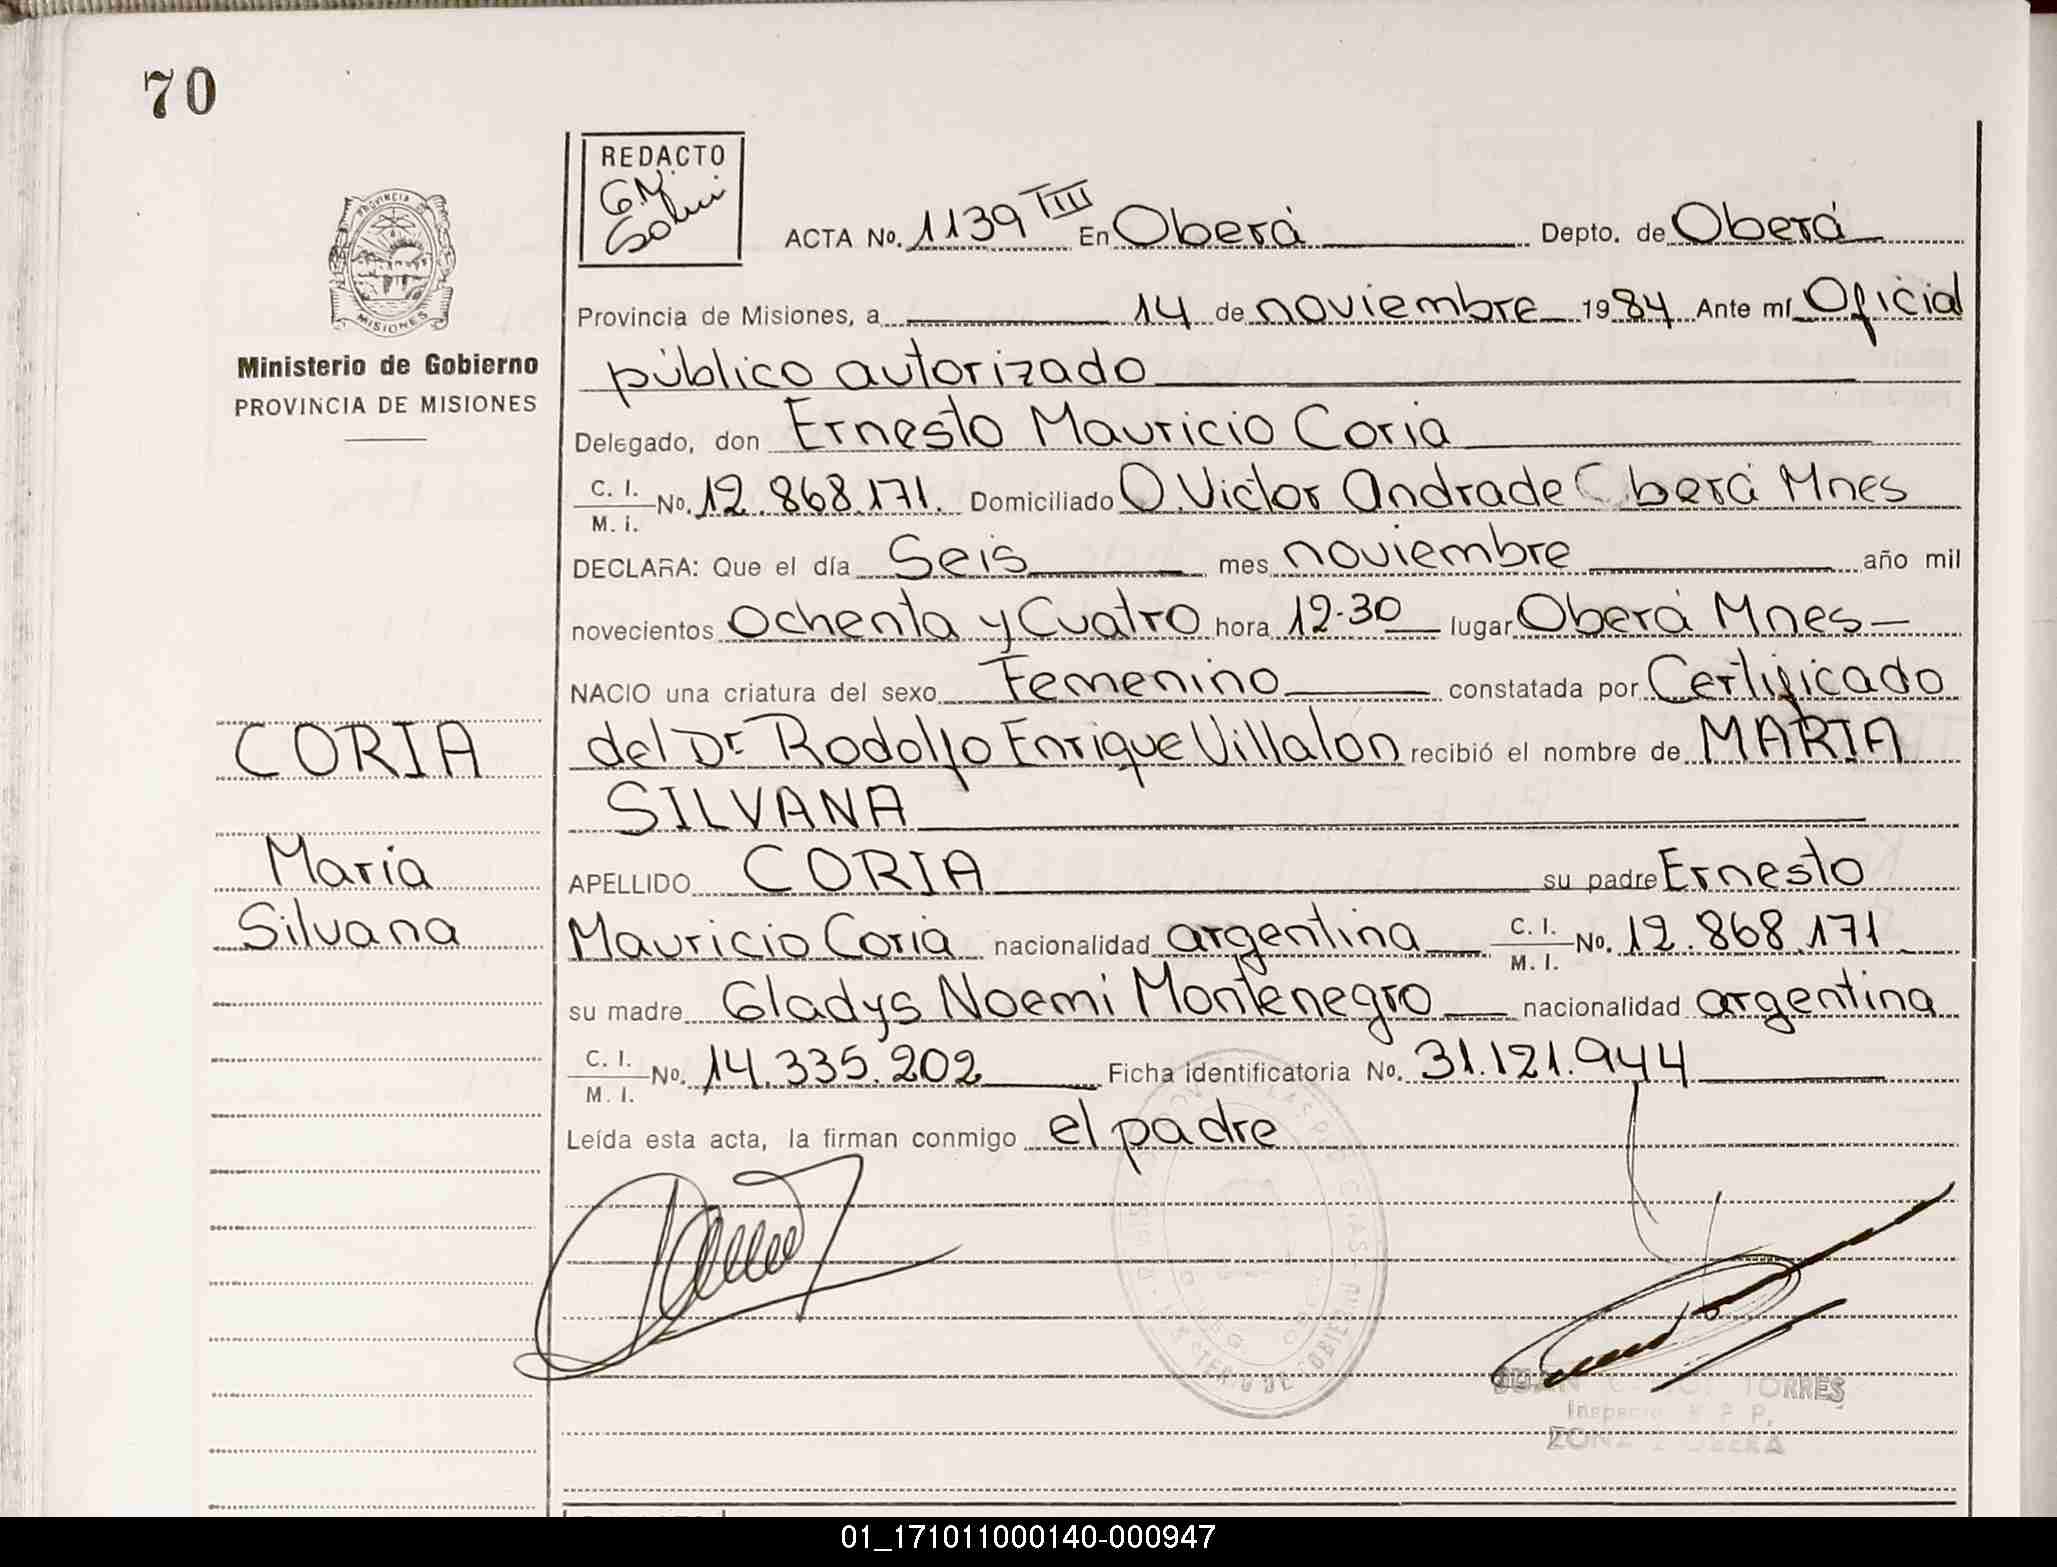 70
REDACTO
G.N.
PROVINCIA DE
MISIONES
ACTA No. 1139 TIII En Oberá Depto. de Oberá
Provincia de Misiones, a 14 de noviembre 1984 Ante mí Oficial
Ministerio de Gobierno
público autorizado
PROVINCIA DE MISIONES
Delegado, don Ernesto Mauricio Coria
C. I.
M. i. No. 12.868.171. Domiciliado O. Victor Andrade Oberá Mnes
DECLARA: Que el día Seis mes noviembre año mil
novecientos Ochenta y Cuatro hora 12.30 lugar Oberá Mnes-
NACIO una criatura del sexo Femenino constatada por Certificado
CORIA
del Dr Rodolfo Enrique Villalón recibió el nombre de MARIA
SILVANA
Maria
APELLIDO CORIA su padre Ernesto
Silvana
Mauricio Coria nacionalidad argentina C. I. M. I. No. 12.868.171
su madre Gladys Noemi Montenegro nacionalidad argentina
C. I. M. I. No. 14.335.202 Ficha identificatoria No. 31.121.944
Leída esta acta, la firman conmigo el padre
MINISTERIO DE GOBIERNO
TORRES
ZONA OBERA
01_171011000140-000947